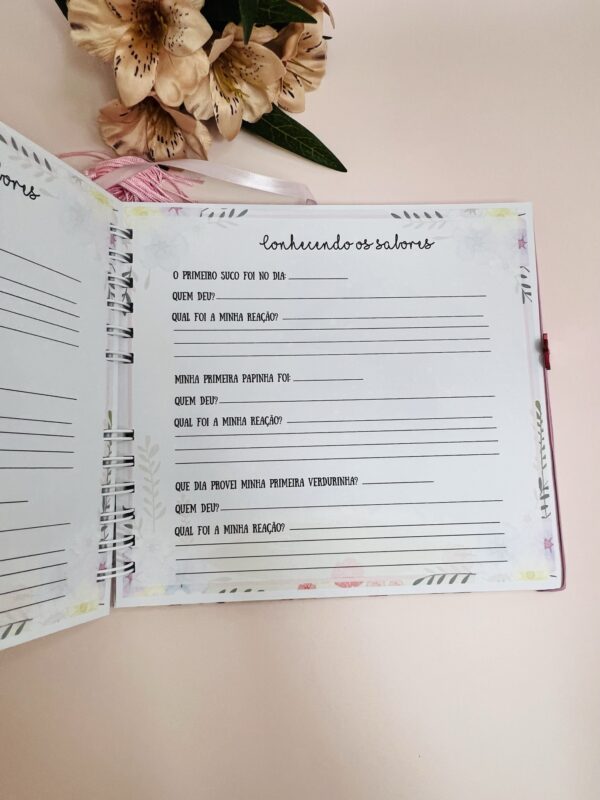 conhecendo os sabores
O PRIMEIRO SUCO FOI NO DIA:
QUEM DEU?
QUAL FOI A MINHA REAÇÃO?
MINHA PRIMEIRA PAPINHA FOI:
QUEM DEU?
QUAL FOI A MINHA REAÇÃO?
QUE DIA PROVEI MINHA PRIMEIRA VERDURINHA?
QUEM DEU?
QUAL FOI A MINHA REAÇÃO?